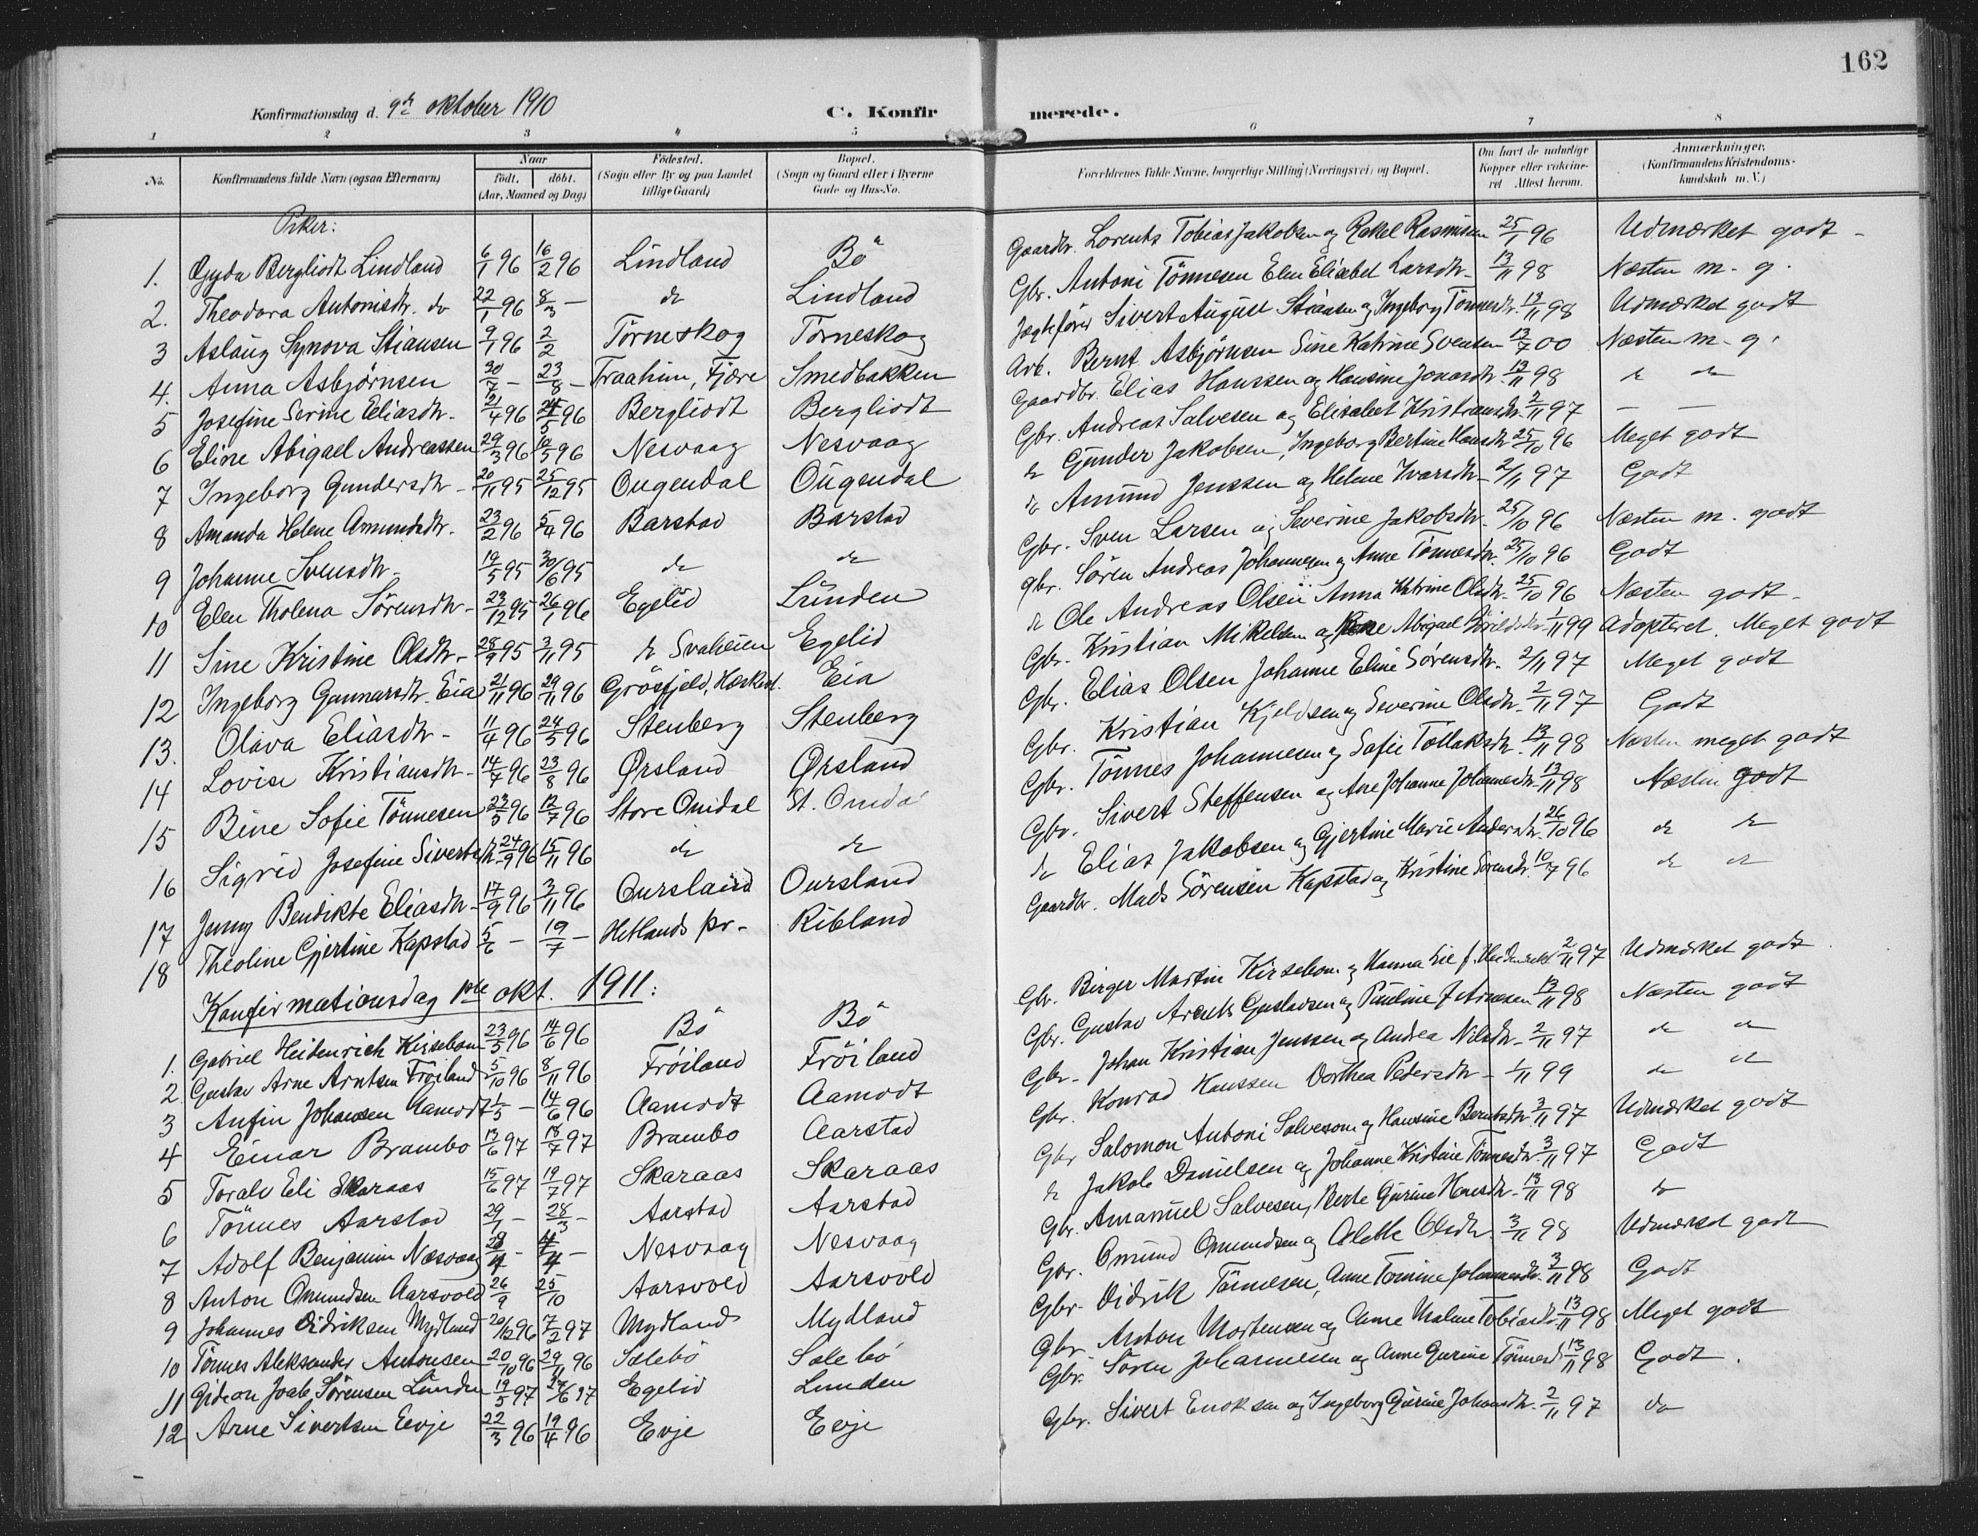 162
Konfirmationsdag d. 9de oktober 1910
C. Konfirmerede.
1 2 3 4 5 6 7 8
No. Konfirmandens fulde Navn (ogsaa Efternavn) Naar født. døbt. (Aar, Maaned og Dag) Fødested. (Sogn eller By og paa Landet tillige Gaard) Bopæl. (Sogn og Gaard eller i Byerne Gade og Hus-No.) Forældrenes fulde Navne, borgerlige Stilling (Næringsvei) og Bopæl. Om havt de naturlige Kopper eller vaccineret Attest herom. Anmærkninger. (Konfirmandens Kristendomskundskab m. V.)
Piker:
1. Gyda Bergliodt Lindland 6/1 96 16/2 96 Lindland Bö Gaardbr. Lorents Tobias Jakobsen og Rakel Rasmusen 25/1 96 Udmærket godt
2. Theodora Antonisdr. do 22/1 96 8/3 — do Lindland Gbr. Antoni Tönnesen Elen Elisabet Larsdtr. 13/11 98 Næsten m. g.
3 Aslaug Synova Stiansen 9/1 96 2/2 Törneskog Törneskog Jægtefører Sivert August Stiansen og Ingeborg Tönnesdr. 13/11 98 Udmærket godt
4. Anna Asbjørnsen 30/7 — 23/8 — Traahim, Fjære Smedbakken Arb. Bernt Asbjørnsen Sine Katrine Svensen 13/7 00 Næsten m. g.
5 Josefine Serine Eliasdtr. 21/4 96 25/5 96 Bergliodt Bergliodt Gaardbr. Elias Hanssen og Hansine Jonasdtr. 13/11 98 do do
6 Eline Abigael Andreassen 29/3 96 10/5 96 Nesvaag Nesvaag Gbr. Andreas Salvesen og Elisabet Kristiansdr. 2/11 97 — —
7 Ingeborg Gundersdtr. 20/11 95 25/12 95 Ougendal Ougendal do Gunder Jakobsen, Ingeborg Bertine Hansdtr. 25/10 96 Meget godt
8 Amanda Helene Amundsdtr. 23/2 96 5/4 96 Barstad Barstad do Amund Jenssen og Helene Ivarsdtr. 2/11 97 Godt
9 Johanne Svensdtr. 19/5 95 30/6 95 do do Gbr. Sven Larsen og Severine Jakobsdtr. 25/10 96 Næsten m. godt
10 Elen Tholena Sörensdtr. 23/12 95 26/1 96 Egelid Lunden gbr. Sören Andreas Johannesen og Anne Tönnesdtr. 25/10 96 Godt
11 Sine Kristine Olsdtr. 28/9 95 3/11 95 do Svaheien Egelid do Ole Andreas Olsen Anna Katrine Olsdtr. 25/10 96 Næsten godt
12 Ingeborg Gunnarsdtr. Eia 21/11 96 29/11 96 Grösfjeld, Heskest. Eia Gbr. Kristian Mikelsen og Abigael 1/11 99 Adopteret. Meget godt
13. Olava Eliasdtr. 11/4 96 24/5 96 Stenberg Stenberg Gbr. Elias Olsen Johanne Eline Sørensdtr. 2/11 97 Meget godt
14 Lovise Kristiansdtr. 14/7 96 23/8 96 Ørsland Ørsland Gbr. Kristian Kjeldsen og Severine Olsdtr. 2/11 97 Godt
15 Bine Sofie Tönnesen 23/5 96 12/7 96 Store Omdal St. Omdal Gbr. Tönnes Johannesen og Sofie Tollaksdtr. 13/11 98 Næsten meget godt
16 Sigrid Josefine Sivertsdtr. 24/9 96 15/11 96 do do Gbr. Sivert Steffensen og Ane Johanne Johannesdtr. 13/11 98 Næsten godt
17 Jenny Bendikte Eliasdtr. 17/9 96 3/11 96 Oursland Oursland do Elias Jakobsen og Gjertine Marie Andersdtr. 26/10 96 do do
18 Theoline Gjertine Kapstad 5/6 — 19/7 — Hetlands pr. Ribland Gaardbr. Mads Sörensen Kapstad og Kristine Sörensdr. 10/7 96 do do
Konfirmationsdag 1ste okt. 1911:
1. Gabriel Heidenrich Kirsebom 23/5 96 14/6 96 Bö Bö Gbr. Birger Martin Kirsebom og Hanna Lie f. Heidenrich 2/11 97 Udmærket godt
2 Gustav Arne Arntsen Fröiland 5/10 96 8/11 96 Fröiland Fröiland Gbr. Gustav Arents Gustavsen og Pauline 13/11 98 Næsten godt
3 Anfin Johansen Aamodt 1/5 — 14/6 96 Aamodt Aamodt Gbr. Johan Kristian Jenssen og Andrea Nilsdtr. 2/11 97 do do
4 Einar Brambo 13/6 97 18/7 97 Brambo Aarstad Gbr. Konrad Hanssen Dorthea Pedersdtr. 1/11 99 do do
5 Toralv Eli Skaraas 15/6 97 19/7 97 Skaraas Skaraas Gbr Salomon Antoni Salvesen og Hansine Berntsdtr. 3/11 97 Udmærket godt
6 Tönnes Aarstad 29/1 — 28/3 — Aarstad Aarstad do Jakob Danielsen og Johanne Kristine Tönnesdr. 3/11 97 Godt
7 Adolf Benjamin Næsvaag 28/4 — Nesvaag Nesvaag Gbr. Amanuel Salvesen, Berte Gurine Hansdtr. 13/11 98 do
8 Anton Omundsen Aarsvold 26/9 25/10 Aarsvold Aarsvold Gbr. Omund Omundsen og Alette Olsdtr. 3/11 98 Udmærket godt
9 Johannes Didriksen Mydland 20/12 96 7/2 97 Mydland Mydland Gbr. Didrik Tönnesen, Anne Tomine Johannesdr. 3/11 98 Godt
10 Tönnes Aleksander Antonsen 20/10 96 29/11 96 Solebö Solebö Gbr. Anton Mortensen og Anne Malene Tobiasdtr. 13/11 98 Meget godt
11 Gideon Joab Sörensen Lunden 19/5 97 27/6 97 Egelid Lunden Gbr. Sören Johannesen og Anne Gurine Tönnesd. 13/11 98 Godt.
12 Arne Sivertsen Eevje 22/3 96 19/4 96 Evje Evje Gbr. Sivert Enoksen og Ingeborg Gurine Johansdtr. 2/11 97 do